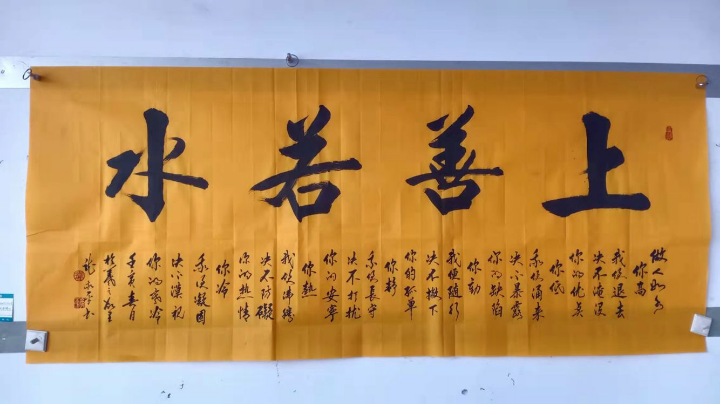 上善若水
做人如水
你高
我便退去
决不淹没
你的优美
你低
我便涌来
决不暴露
你的缺陷
你动
我便随行
决不撇下
你的孤单
你静
我便长守
决不打扰
你的安宁
你热
我便沸腾
决不妨碍
你的热情
你冷
我便凝固
决不漠视
你的寒冷
壬寅春月
书